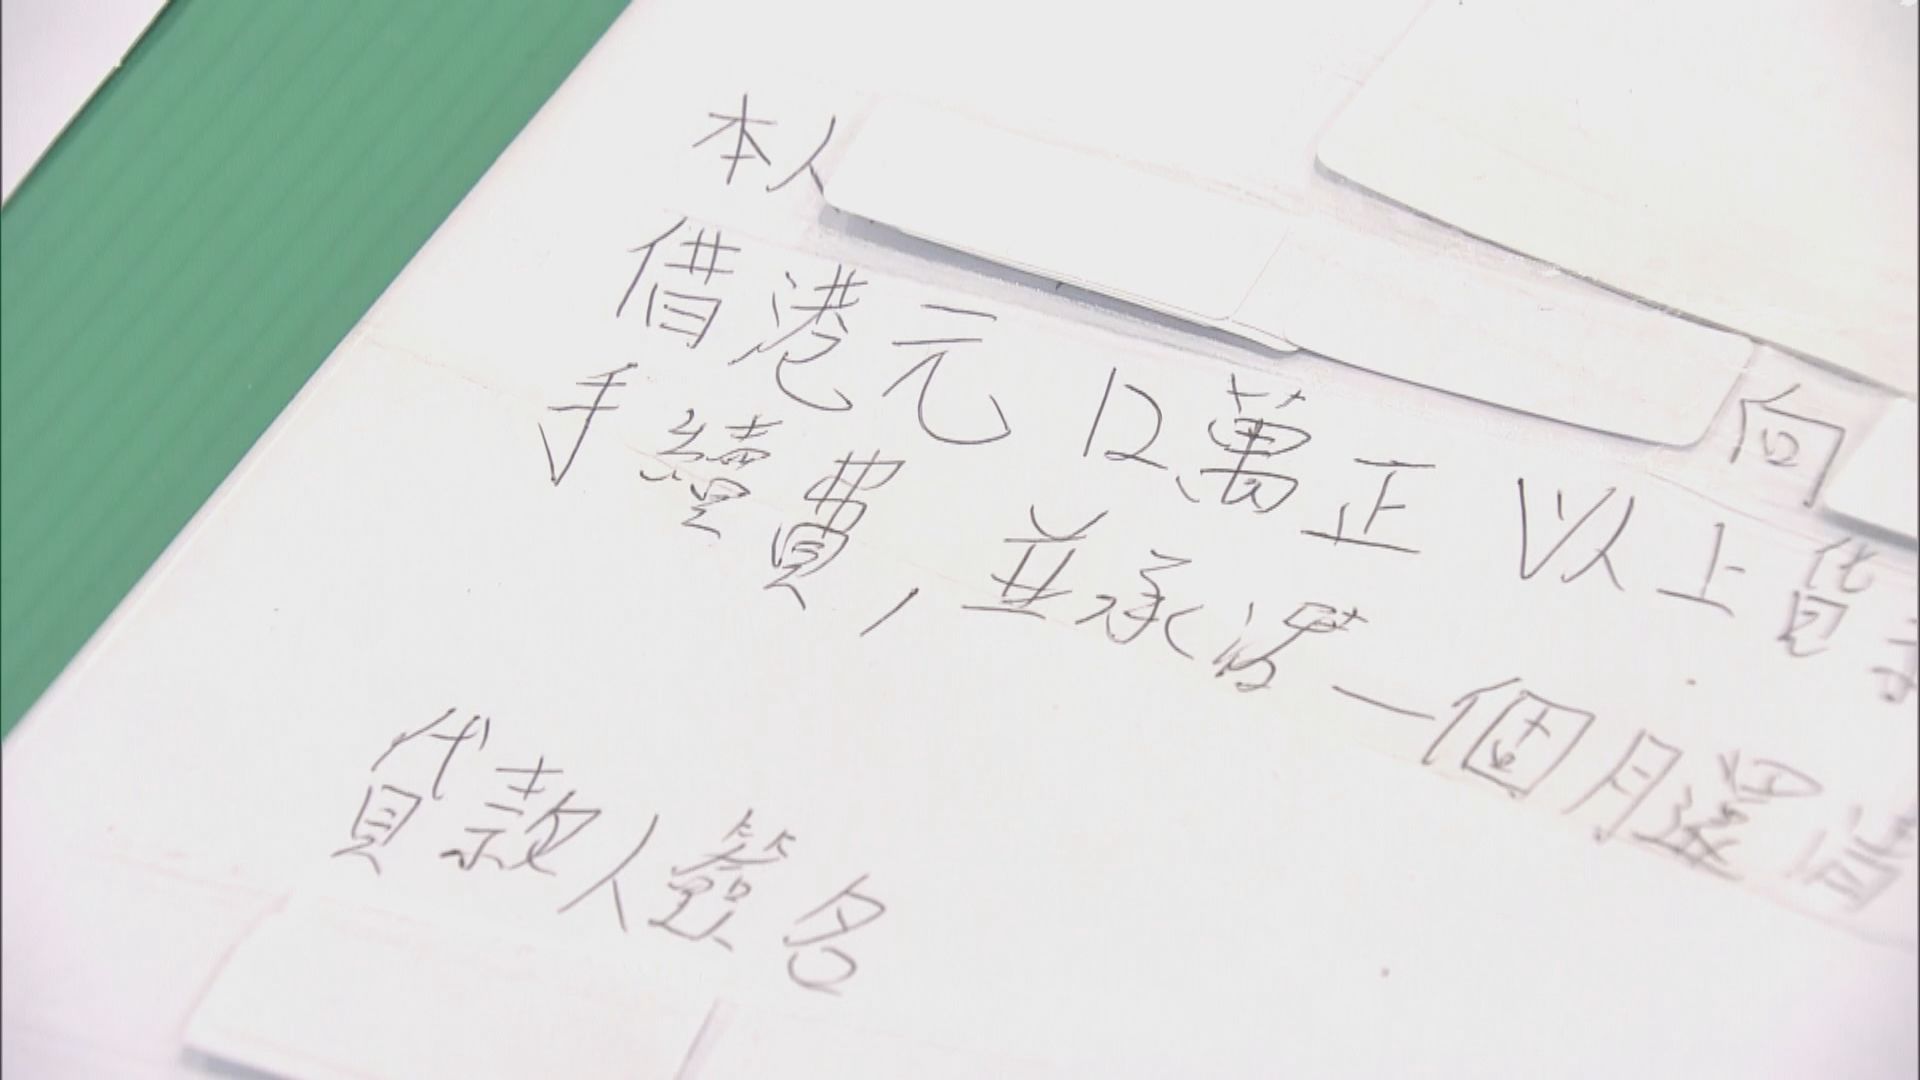 本人 向
借港元 12萬正 以上貸
手續費,並承諾一個月還
貸款人簽名